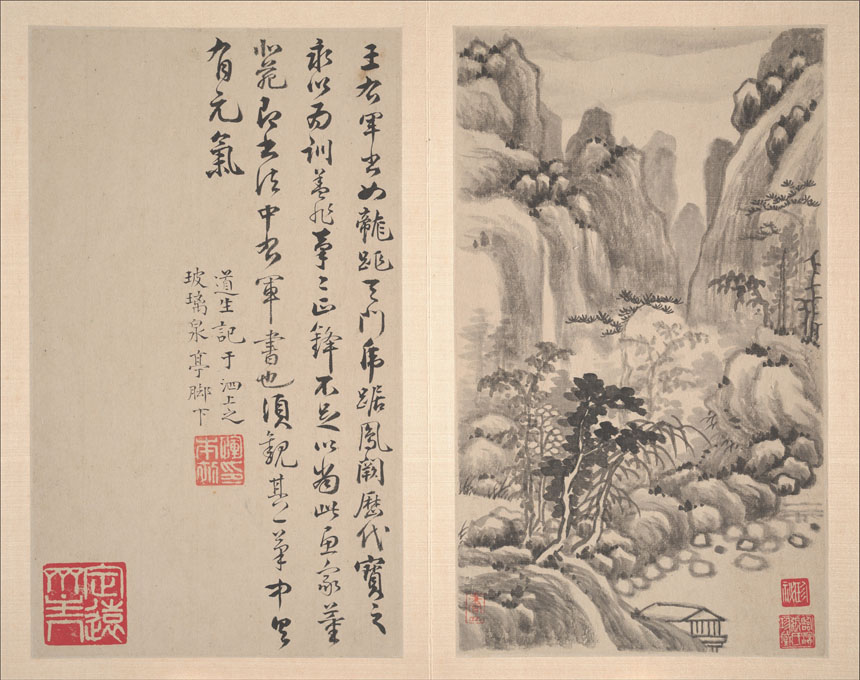 王右軍書如龍跳天門虎踞鳳闕歷代寶之
永以為訓蓋非筆筆正鋒不足以當此画家董
北苑即書法中右軍書也須觀其一筆中具
有元氣
道生記于泗上之
玻璃泉亭腳下